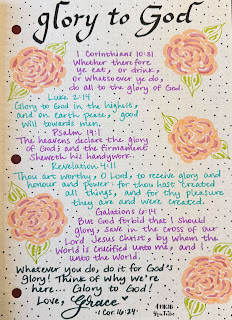 glory to God
1 Corinthians 10:31
Whether therefore
ye eat, or drink,
or whatsoever ye do,
do all to the glory of God.
Luke 2:14
Glory to God in the highest,
and on earth peace, good
will towards men.
Psalm 19:1
The heavens declare the glory
of God; and the firmament
sheweth his handywork.
Revelation 4:11
Thou art worthy, O Lord, to receive glory and
honour and power: for thou hast created
all things, and for thy pleasure
they are and were created.
Galatians 6:14
But God forbid that I should
glory, save in the cross of our
Lord Jesus Christ, by whom the
world is crucified unto me, and I
unto the world.
Whatever you do, do it for God's
glory! Think of why we're
here... Glory to God!
Love, Grace
1 Cor. 16:24